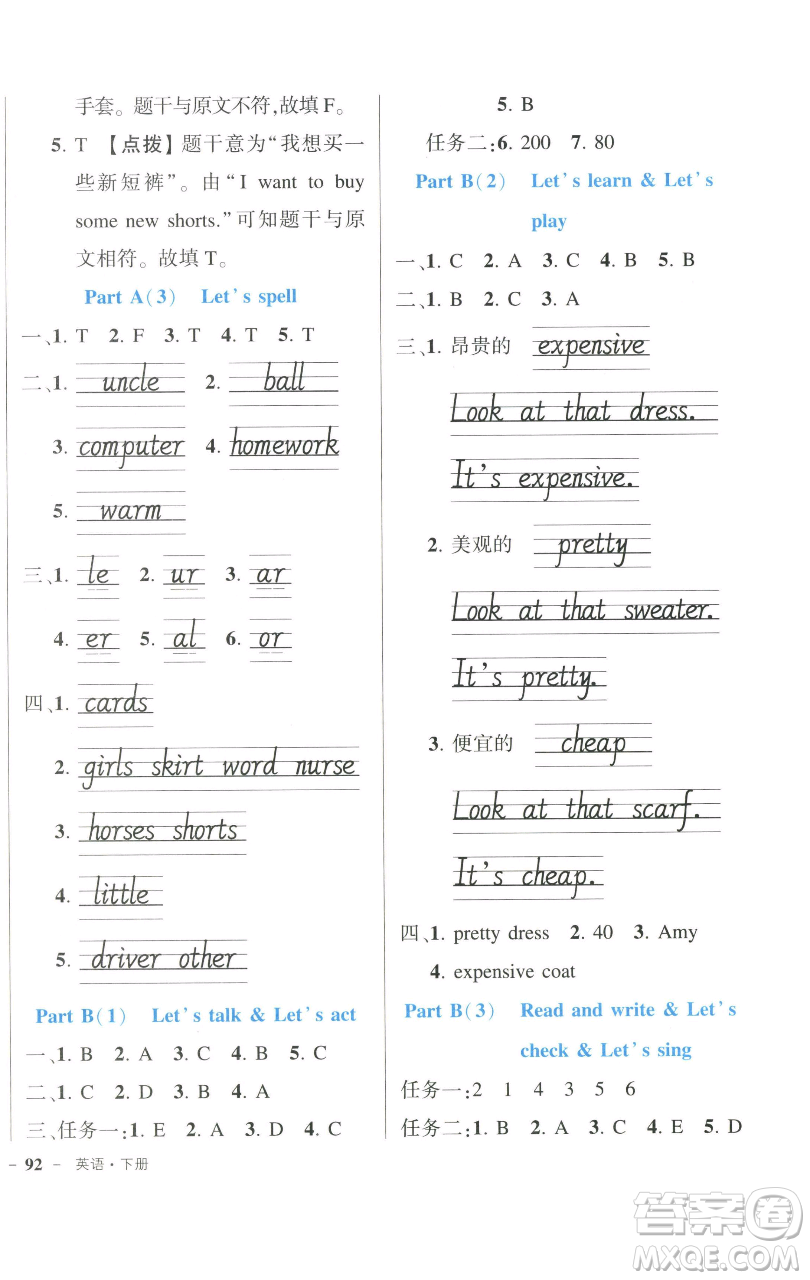 手套。题干与原文不符,故填 F。
5. T 【点拨】题干意为“我想买一
些新短裤”。由“I want to buy
some new shorts.”可知题干与原
文相符。故填 T。
Part A(3) Let's spell
一、1. T 2. F 3. T 4. T 5. T
二、1. uncle 2. ball
3. computer 4. homework
5. warm
三、1. le 2. ur 3. ar
4. er 5. al 6. or
四、1. cards
2. girls skirt word nurse
3. horses shorts
4. little
5. driver other
Part B(1) Let's talk & Let's act
一、1. B 2. A 3. C 4. B 5. C
二、1. C 2. D 3. B 4. A
三、任务一:1. D 2. A 3. E 4. C
5. B
任务二:6. 200 7. 80
Part B(2) Let's learn & Let's
play
一、1. C 2. A 3. C 4. B 5. B
二、1. B 2. C 3. A
三、1. 昂贵的 expensive
Look at that dress.
It's expensive.
2. 美观的 pretty
Look at that sweater.
It's pretty.
3. 便宜的 cheap
Look at that scarf.
It's cheap.
四、1. pretty dress 2. 40 3. Amy
4. expensive coat
Part B(3) Read and write & Let's
check & Let's sing
任务一:2 1 4 3 5 6
任务二:1. B 2. A 3. C 4. E 5. D
- 92 - 英语·下册
答案卷
MXQE.COM